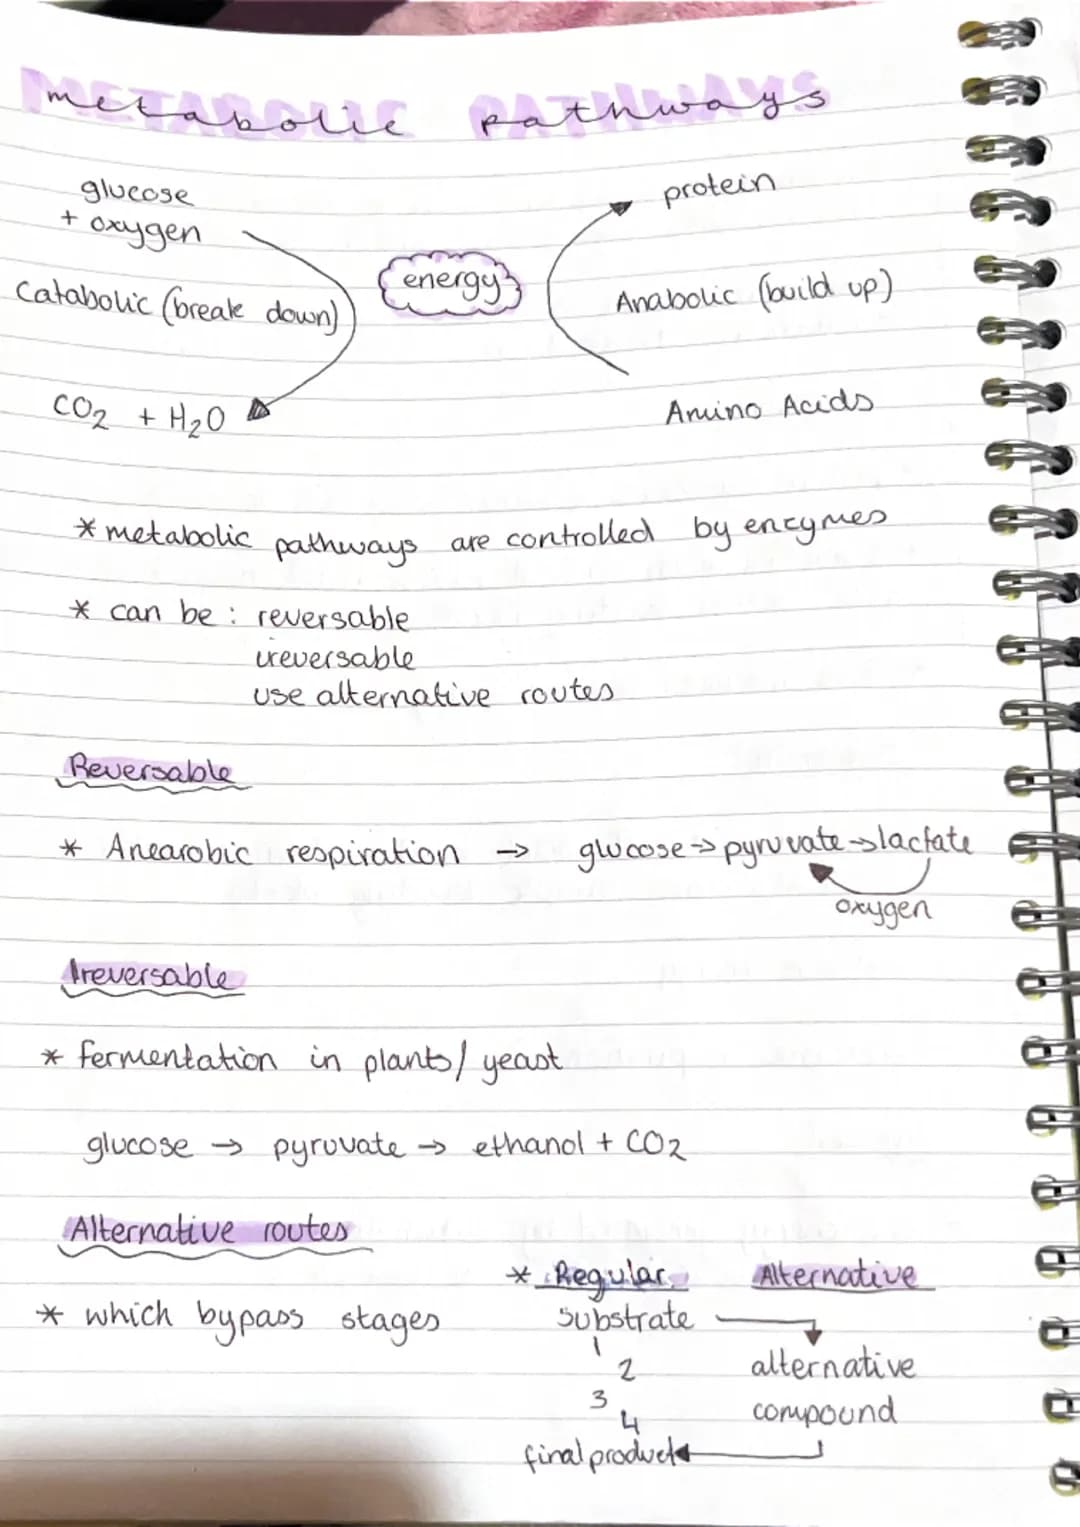 metabolic pathways
glucose
+ oxygen
Catabolic (break down)
CO2 + H2O
energy
protein
Anabolic (build up)
Amino Acids
* metabolic pathways are controlled by enzymes
* can be : reversable
ireversable
use alternative routes
Reversable
* Anearobic respiration → glucose → pyruvate → lactate
oxygen
Ireversable
* fermentation in plants/ yeast
glucose → pyruvate → ethanol + CO2
Alternative routes
* which bypass stages
* Regular
substrate
1
2
3
4
final product
Alternative
alternative
compound